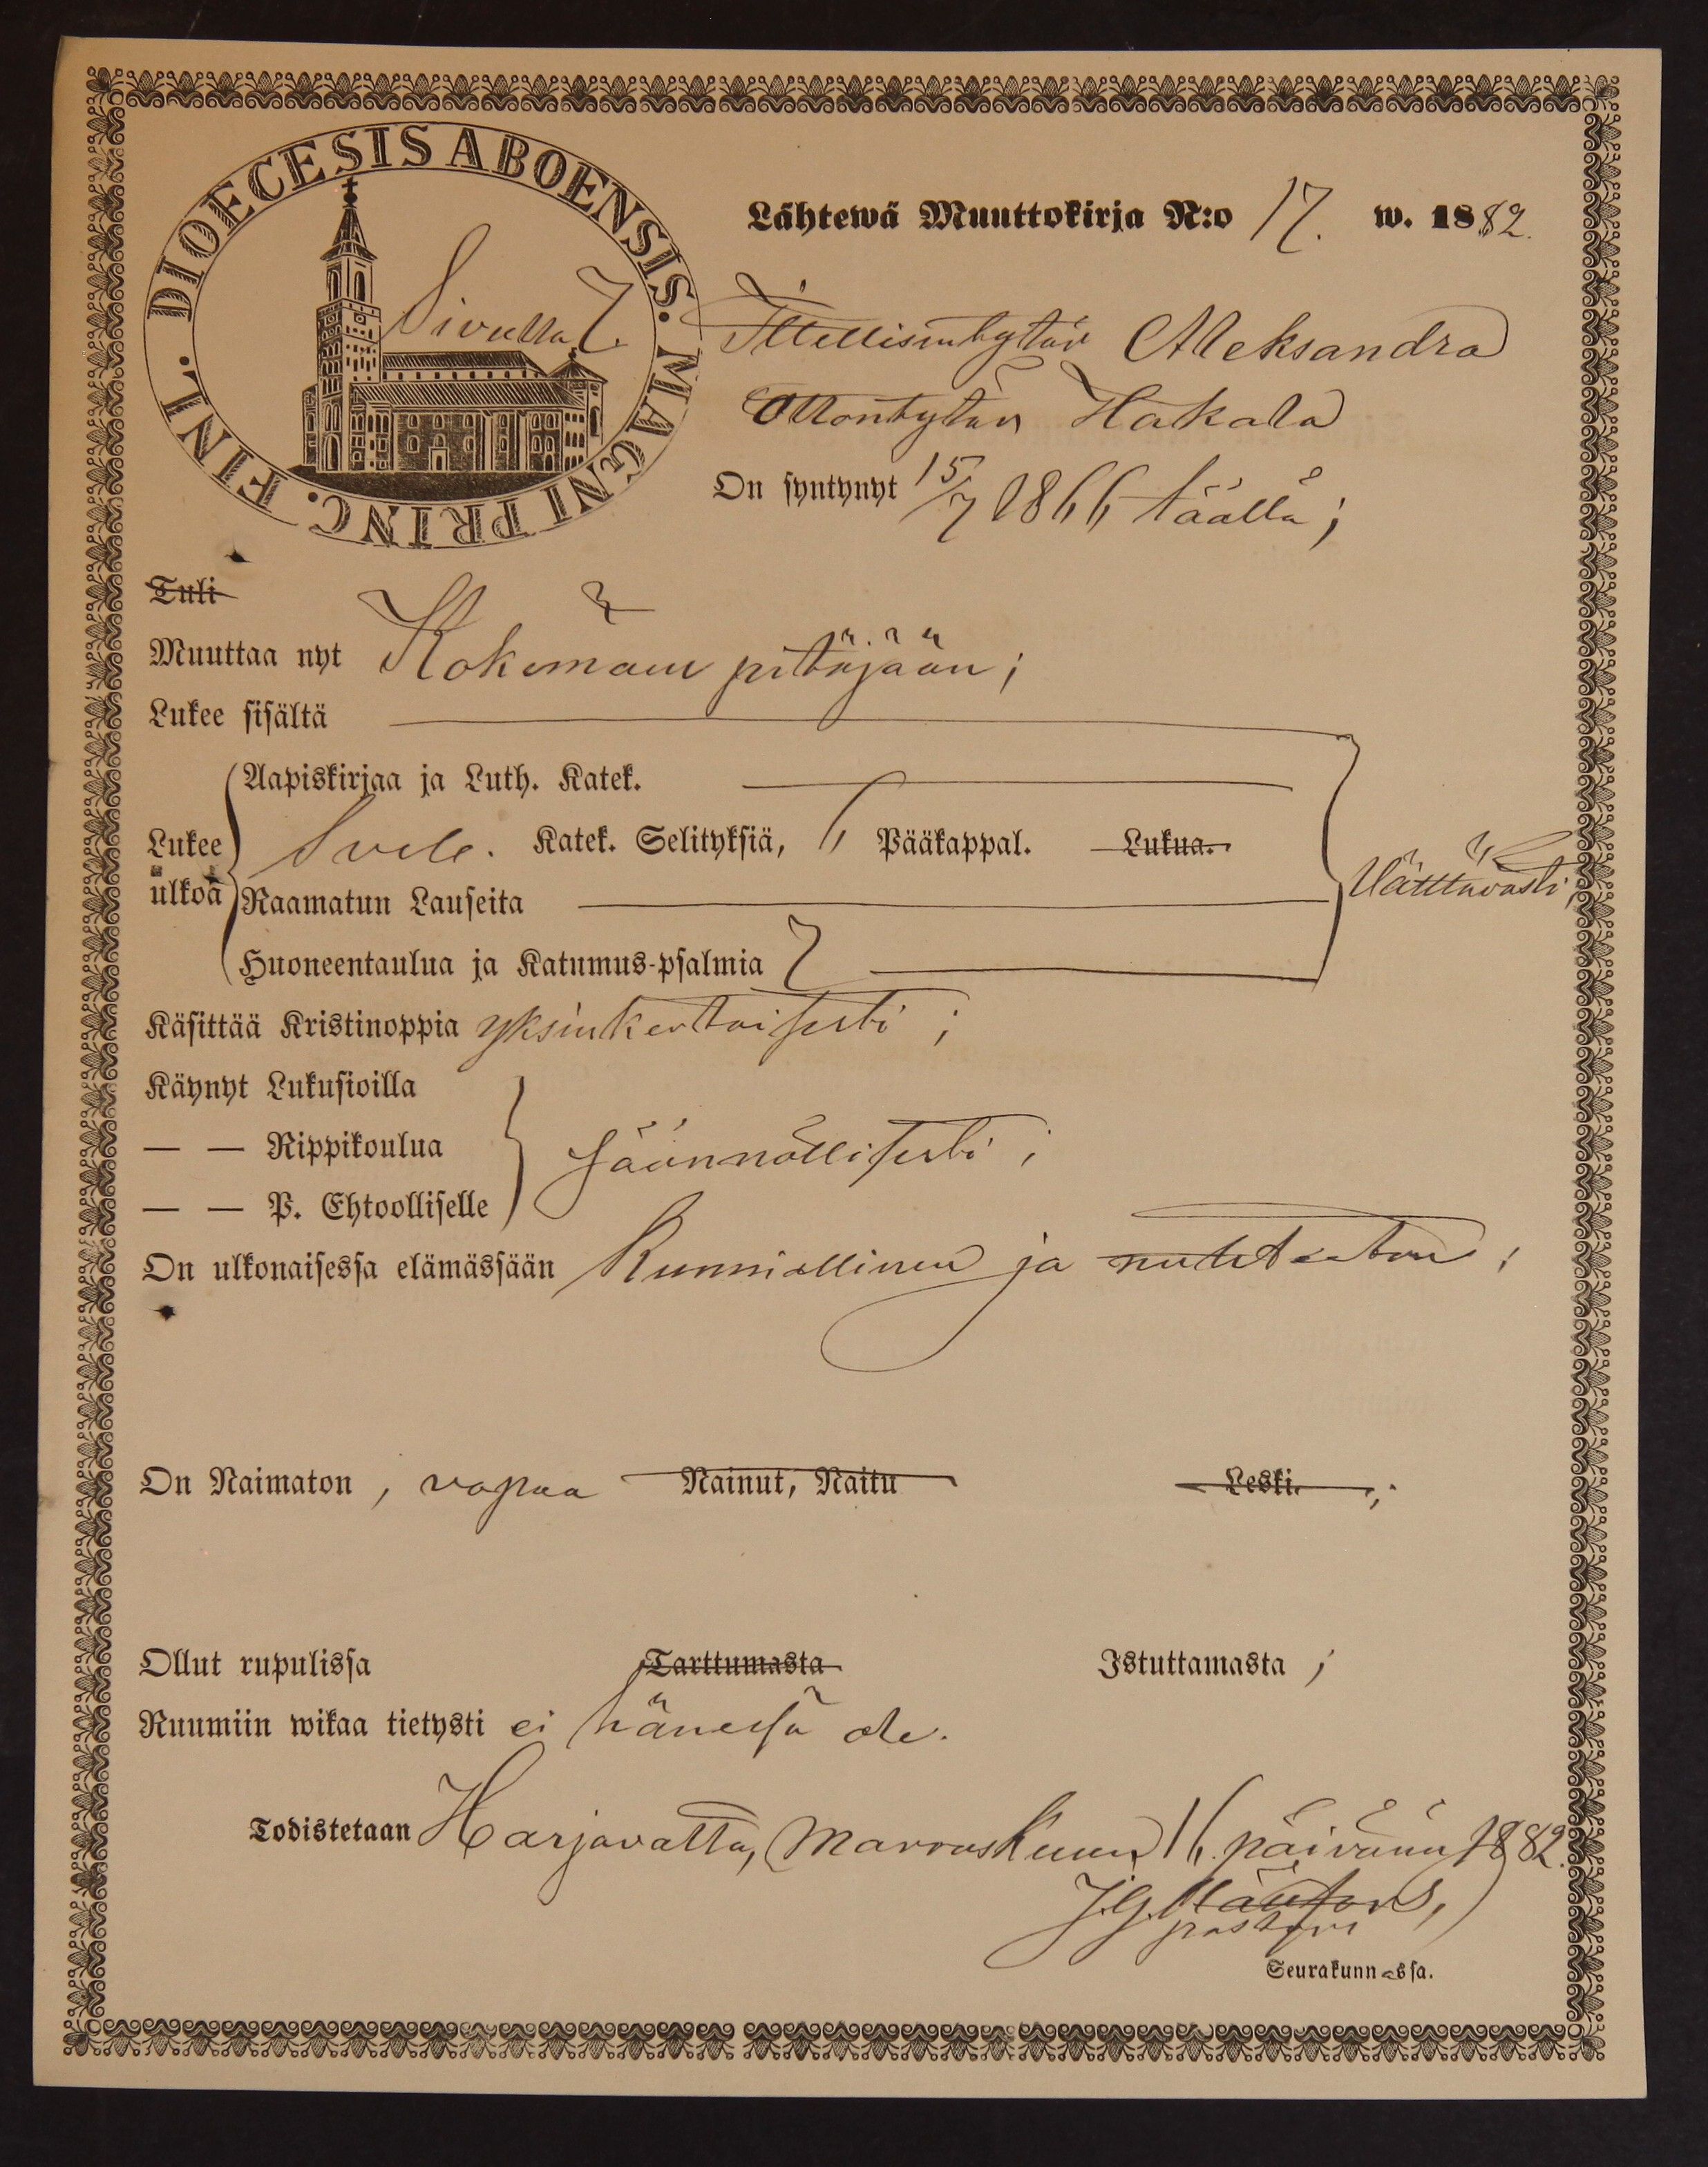 DIOECESIS ABOENSIS. MAGNI PRINC. FINL.
Sivulla 7.
Lähtewä Muuttokirja N:o 17. w. 1882.
Itellisentytär Aleksandra
Ottontytär Hakala
On syntynyt 15/7 1866 täällä;
Tuli
Muuttaa nyt Kokemäen pitäjään;
Lukee sisältä
Aapiskirjaa ja Luth. Katek.
Lukee ulkoa Katek. Selityksiä, Pääkappal. Lukua.
Raamatun Lauseita
Välttävästi;
Huoneentaulua ja Katumus-psalmia 7
Käsittää Kristinoppia yksinkertaisesti;
Käynyt Lukusioilla
— — Rippikoulua säännöllisesti;
— — P. Ehtoolliselle
On ulkonaisessa elämässään Kunniallinen ja nuhteeton;
On Naimaton, vapaa Nainut, Naitu Leski.;
Ollut rupulissa Tarttumasta Istuttamasta;
Ruumiin wikaa tietysti ei hänessä ole.
Todistetaan Harjavalta, Marraskuun 16. päivänä 1882.
J.G.
pastori
Seurakunnassa.